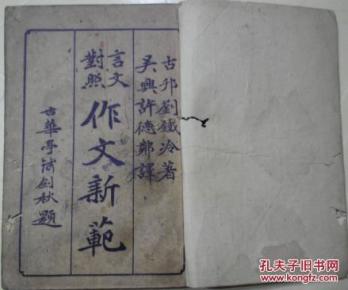 古邗劉鐵冷著
吳興許德鄰譯
言文對照
作文新範
古華亭
秋題
孔夫子旧书网